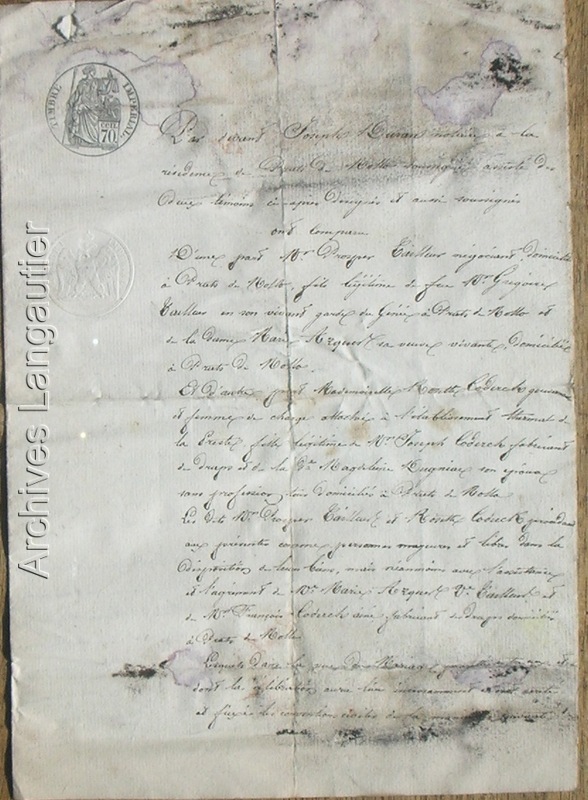 TIMBRE IMPERIAL
70 CENT.
Archives Langautier
Par devant Joseph Duran notaire à la
résidence de Prats de Mollo soussigné assisté des
deux témoins ci-après désignés et aussi soussignés
ont comparu
D'une part Mr Prosper Tailleur négociant domicilié
à Prats de Mollo, fils légitime de feu Mr Grégoire
Tailleur en son vivant garde du Génie à Prats de Mollo et
de la dame Marie Xerquer sa veuve vivante, domiciliée
à Prats de Mollo.
Et d'autre part Mademoiselle Rosette Coderch
et femme de charge attachée à l'établissement thermal de
la Preste, fille légitime de Mr Joseph Coderch fabricant
de draps et de la De Magdeleine son épouse
sans profession, tous domiciliés à Prats de Mollo
Les dits Mr Prosper Tailleur et Rosette Coderch
aux présentes comme personnes majeures et libres dans la
disposition de leurs biens, mais néanmoins avec l'assistance
et l'agrément de Me Marie Xerquer Ve Tailleur et
de Mr François Coderch fabricant de draps domiciliés
à Prats de Mollo
Lesquels dans la vue du Mariage
dont la célébration aura lieu incessamment
et fixé les conventions civiles de la manière suivante